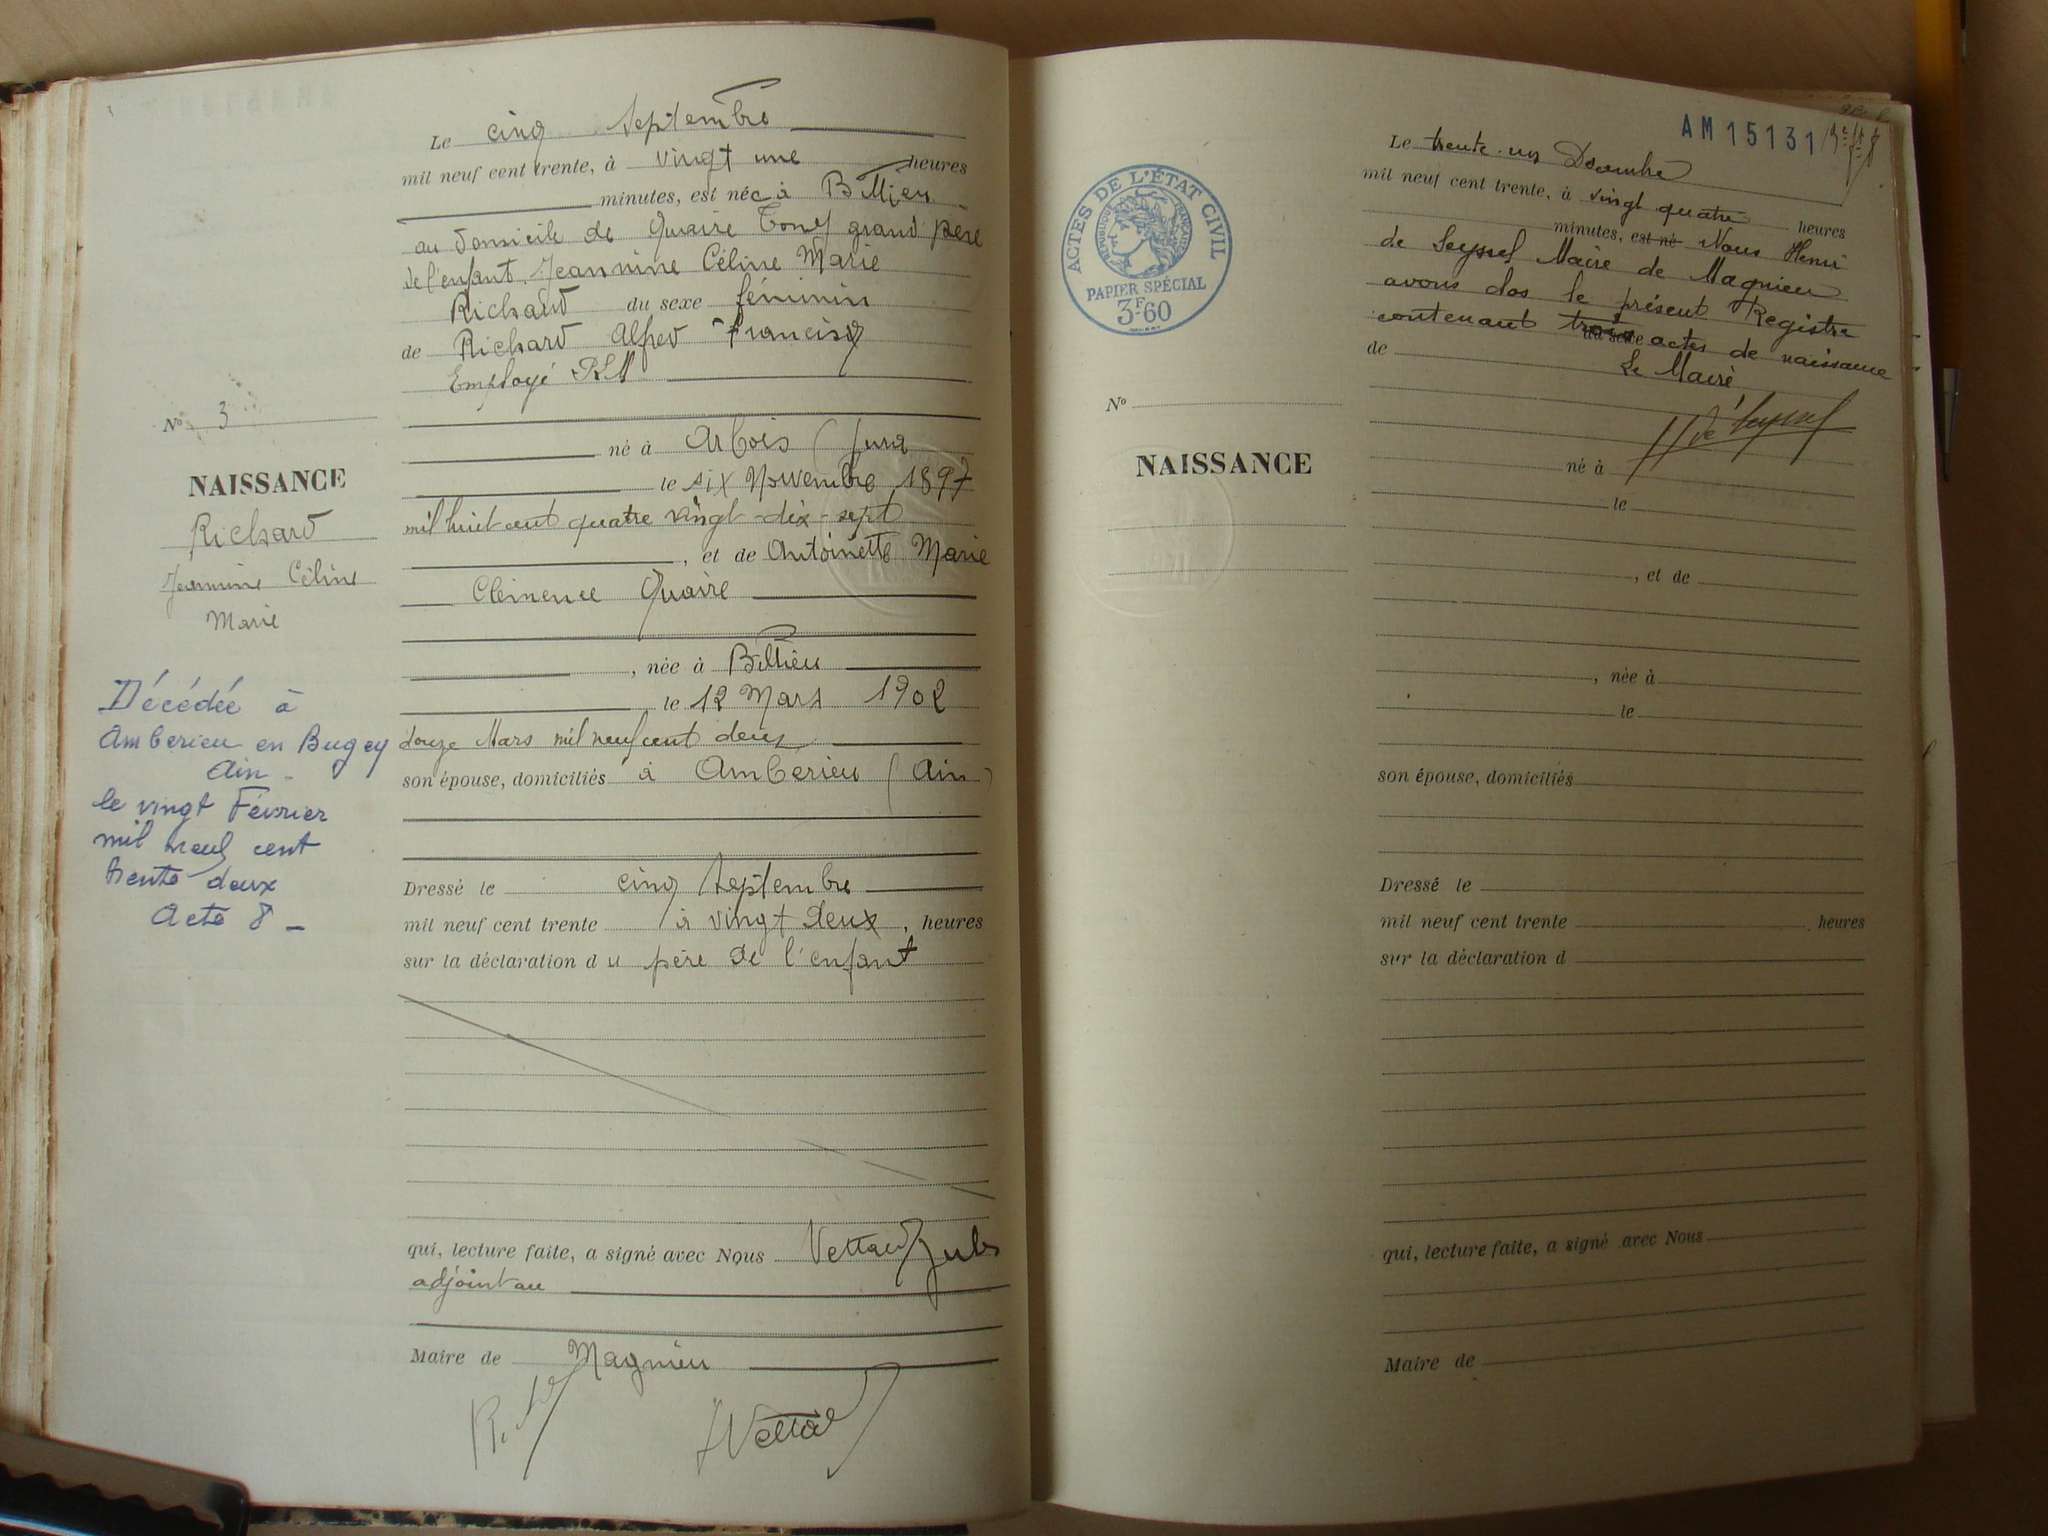 Le cinq Septembre
mil neuf cent trente, à vingt une heures
minutes, est née à Billieu
au domicile de Quaire Tony grand père
de l'enfant, Jeannine Céline Marie
Richard du sexe féminin
de Richard Alfred Francisq
Employé PLM
né à Arbois (Jura
le six Novembre 1897
mil huit cent quatre vingt-dix-sept
, et de Antoinette Marie
Clémence Quaire
, née à Billieu
le 12 Mars 1902
douze Mars mil neuf cent deux
son épouse, domiciliés à Amberieu (Ain)
Dressé le cinq Septembre
mil neuf cent trente à vingt deux, heures
sur la déclaration du père de l'enfant
qui, lecture faite, a signé avec Nous Vettard Jules
adjoint au
Maire de Magnieu
Vettard
No 3
NAISSANCE
Richard
Jeannine Céline
Marie
Décédée à
Amberieu en Bugey
Ain -
le vingt Février
mil neuf cent
trente deux
Acte 8 -
AM15131
ACTES DE L'ÉTAT CIVIL
RÉPUBLIQUE FRANÇAISE
PAPIER SPÉCIAL
3F60
No
NAISSANCE
Le trente-un Décembre
mil neuf cent trente, à vingt quatre heures
minutes, est né Nous Henri
de Seyssel Maire de Magnieu
avons clos le présent Registre
contenant trois actes de naissance
du sexe
de Le Maire
H de Seyssel
né à
le
, et de
, née à
le
son épouse, domiciliés
Dressé le
mil neuf cent trente heures
sur la déclaration d
qui, lecture faite, a signé avec Nous
Maire de